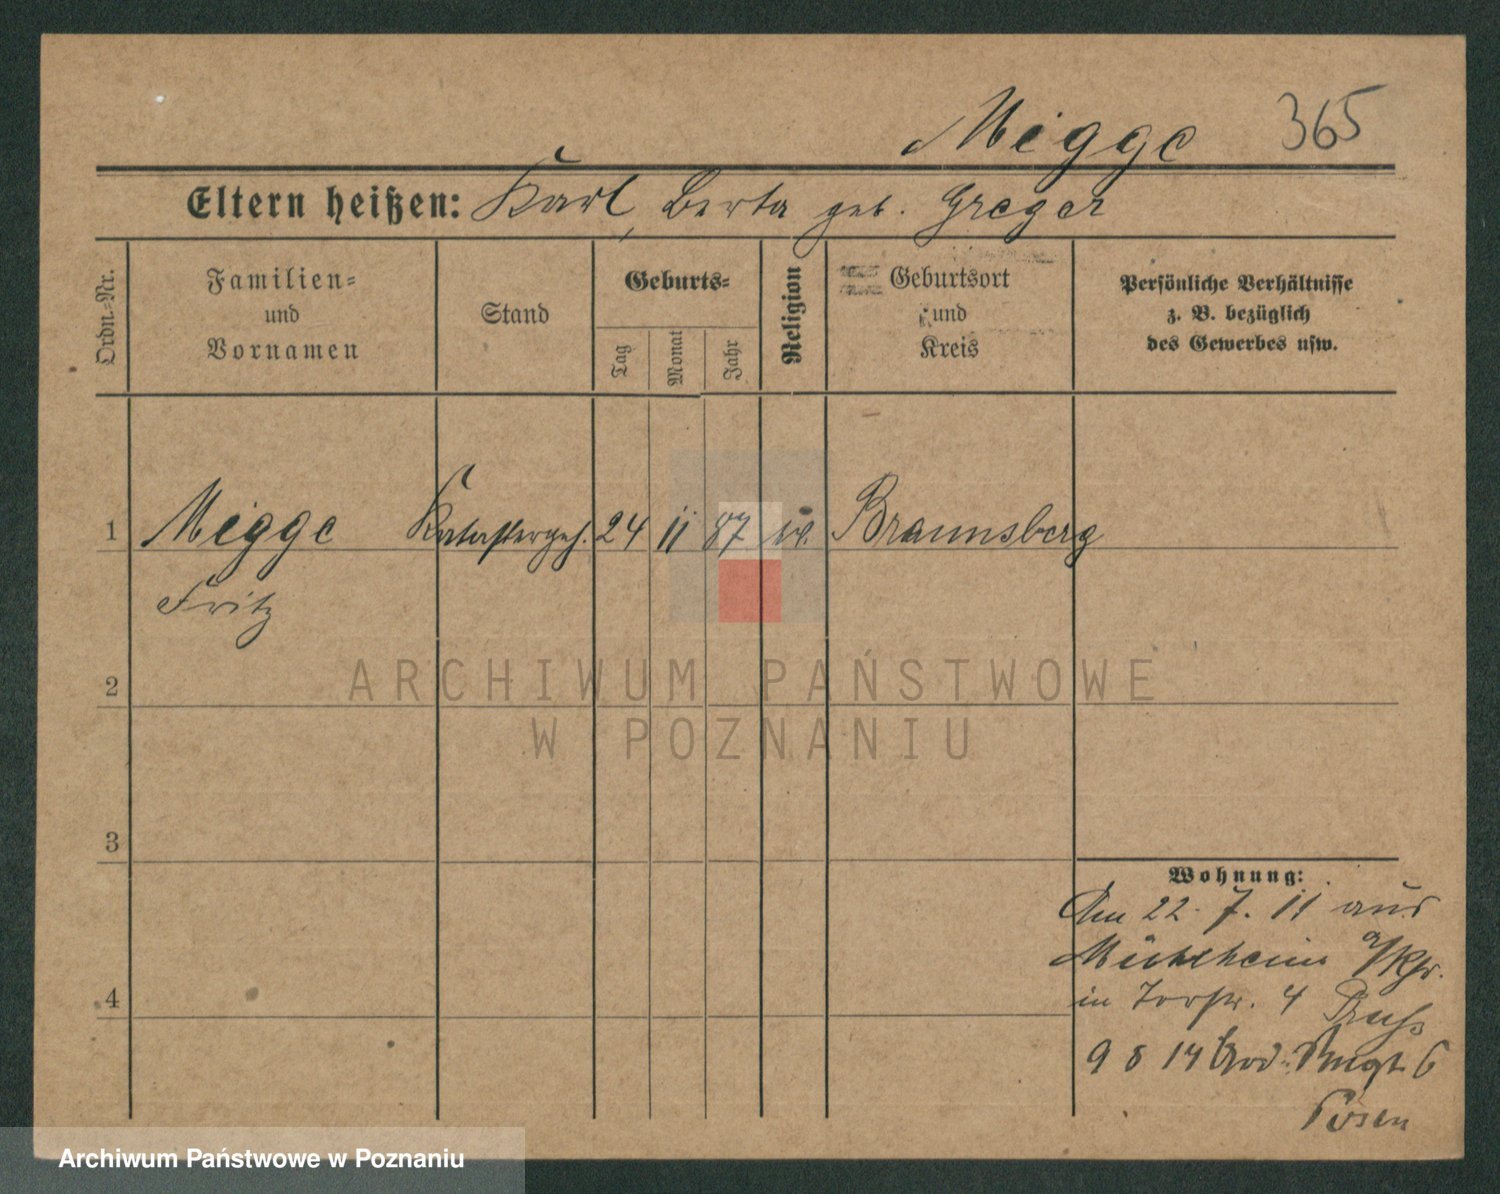 Migge 365
Eltern heißen: Karl, Berta geb. Greger
Ordn.=Nr.
Familien=
und
Vornamen
Stand
Geburts=
Tag
Monat
Jahr
Religion
Geburtsort
und
Kreis
Persönliche Verhältnisse
z. B. bezüglich
des Gewerbes usw.
1 Migge Katastergeh. 24 11 87 ev. Braunsberg
Fritz
2
3
4
Wohnung:
Am 22. 7. 11 aus
in Torstr. 4
9 8 14 6
Posen
ARCHIWUM PAŃSTWOWE
W POZNANIU
Archiwum Państwowe w Poznaniu